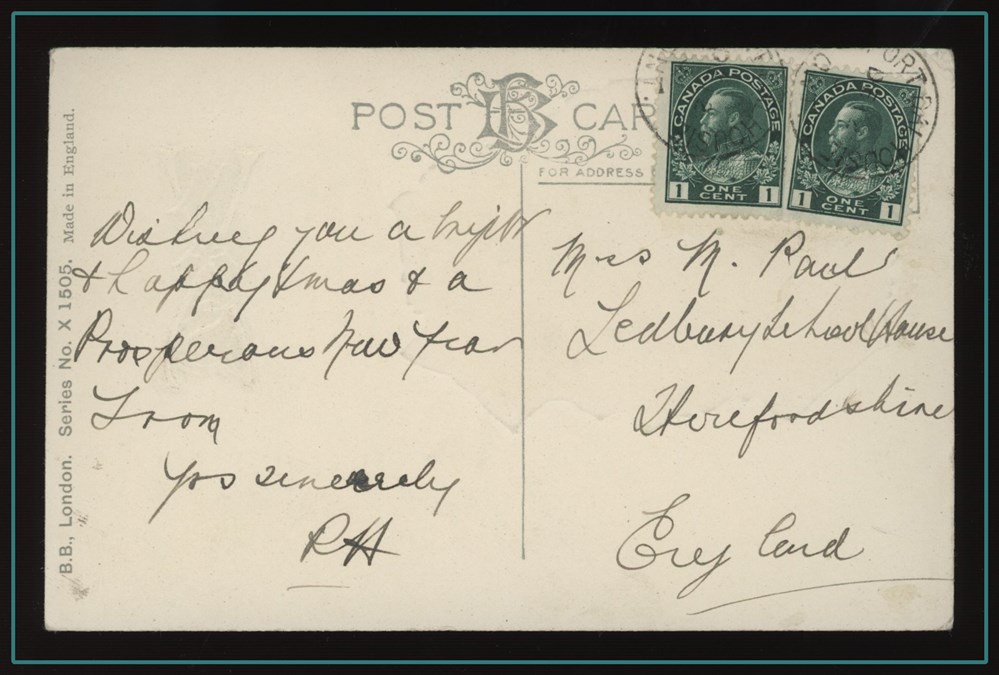 POST CAR
BB
FOR ADDRESS
CANADA POSTAGE
1 ONE CENT 1
CANADA POSTAGE
1 ONE CENT 1
B.B., London. Series No. X 1505. Made in England.
Wishing you a bright
& happy Xmas & a
Prosperous New Year
From
Yrs sincerely
RH
M. Paul
Ledbury School House
Herefordshire
England